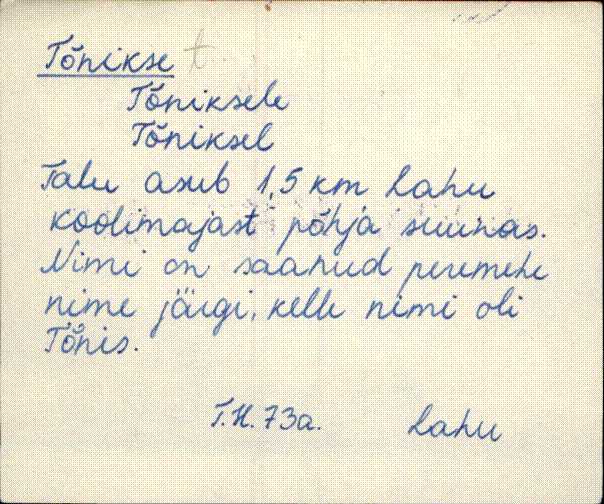 Tõnikse t.
Tõniksele
Tõniksel
Talu asub 1,5 km Lahu
koolimajast põhja suunas.
Nimi on saanud peremehe
nime järgi, kelle nimi oli
Tõnis.
T.H. 73a. Lahu